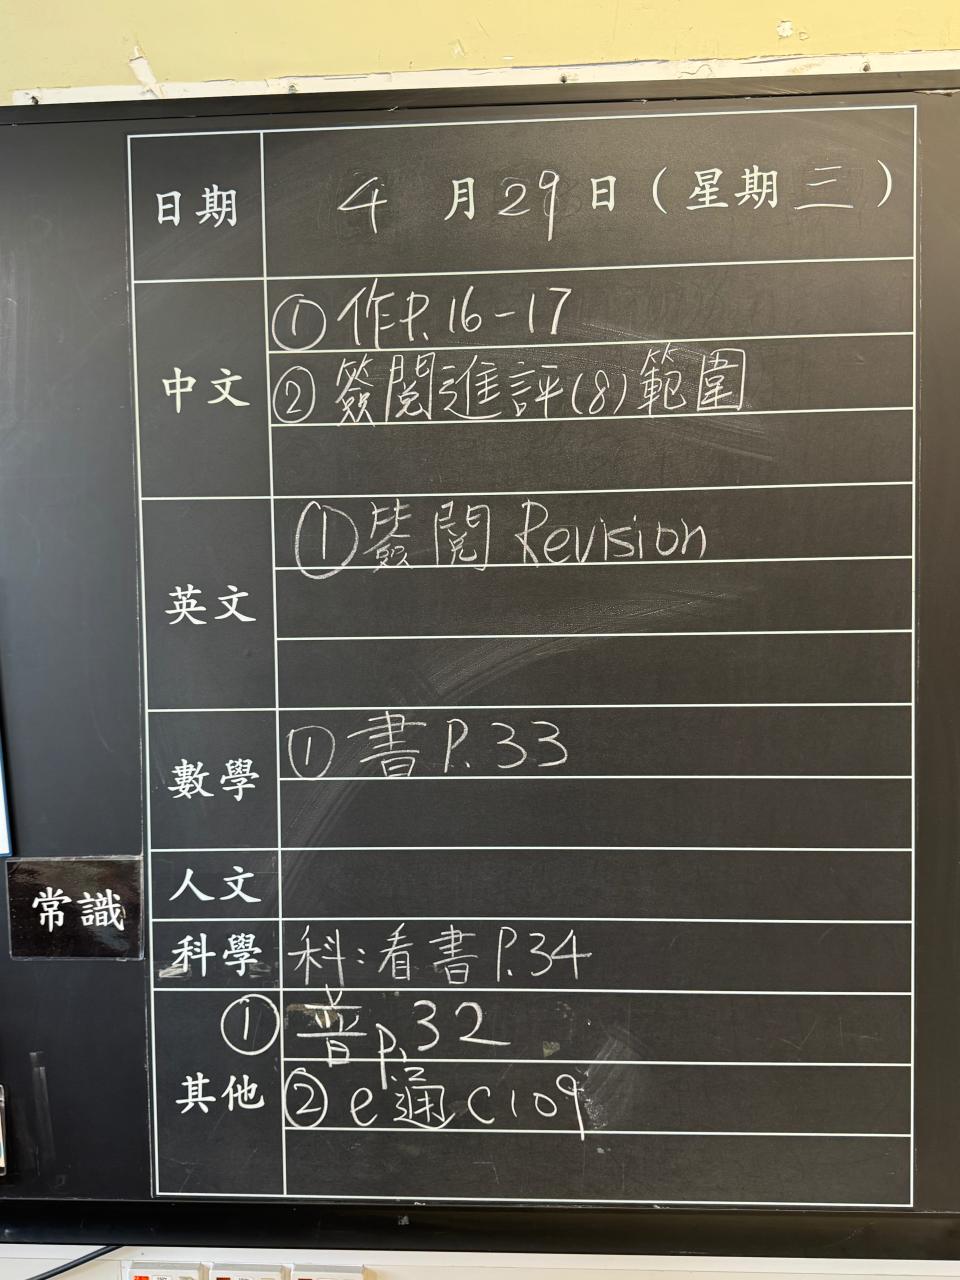 日期 4月29日（星期三）
中文 ①作P.16-17
②簽閱進評(8)範圍
英文 ①簽閱 Revision
數學 ①書P.33
人文
常識
科學 科:看書P.34
其他 ①普p.32
②e通C109